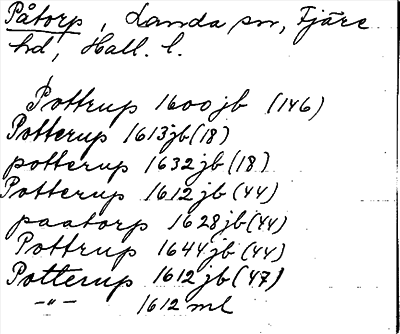 Påtorp, Landa sn, Fjäre
hd, Hall. l.
Pottrup 1600 jb (146)
Potterup 1613 jb (18)
potterup 1632 jb (18)
Potterup 1612 jb (44)
paatorp 1628 jb (44)
Pottrup 1644 jb (44)
Potterup 1612 jb (47)
—"— 1612 ml